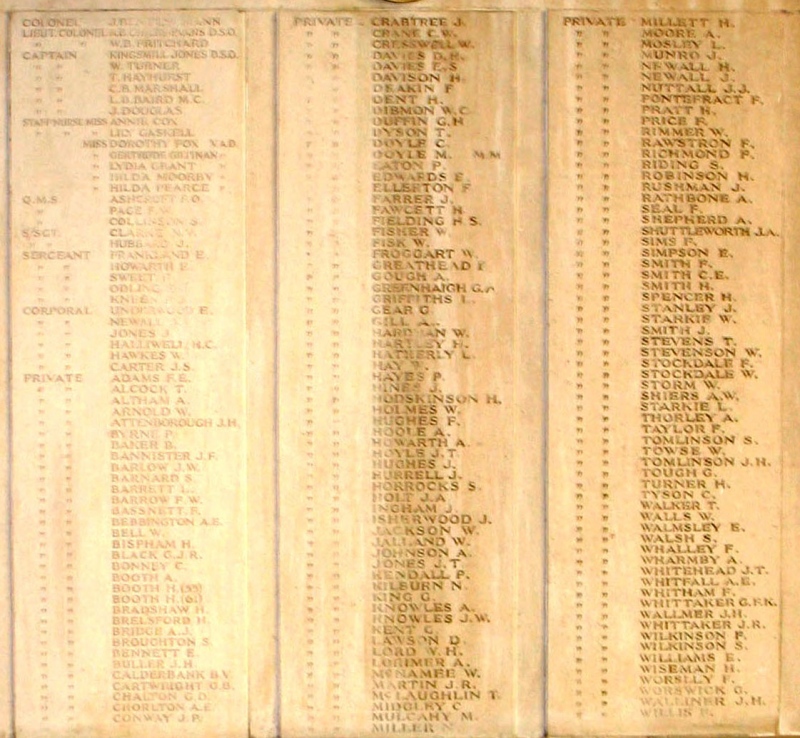 COLONEL J.
LIEUT. COLONEL D.S.O.
" " W.B. PRITCHARD
CAPTAIN KINGSMILL JONES D.S.O.
" " W. TURNER
" " T. HAYHURST
" " C.B. MARSHALL
" " L.B. BAIRD M.C.
" " J. DOUGLAS
STAFF NURSE MISS ANNIE COX
" " " LILY GASKELL
MISS DOROTHY FOX V.A.D.
" GERTRUDE "
" LYDIA GRANT "
" HILDA MOORBY "
" HILDA PEARCE "
Q.M.S. ASHCROFT F.O.
" PAGE F.W.
" COLLINSON S.
S/SGT.
" HUBBARD J.
SERGEANT FRANKLAND E.
" " HOWARTH
" " SWEET
" "
" "
CORPORAL E.
" "
" " JONES J.
" " HALLIWELL H.C.
" " HAWKES W.
" " CARTER J.S.
PRIVATE ADAMS F.E.
" " ALCOCK T.
" " ALTHAM A.
" " ARNOLD W.
" " ATTENBOROUGH J.H.
" " BYRNE P.
" " BAKER B.
" " BANNISTER J.F.
" " BARLOW J.W.
" " BARNARD S.
" " BARRETT L.
" " BARROW F.W.
" " BASSNETT F.
" " BEBBINGTON A.E.
" " BELL W.
" " BISPHAM H.
" " BLACK G.J.R.
" " BONNEY C.
" " BOOTH A.
" " BOOTH H.
" " BOOTH H.
" " BRADSHAW H.
" " BRELSFORD H.
" " BRIDGE A.J.
" " BROUGHTON S.
" " BENNETT E.
" " BULLER J.H.
" " CALDERBANK B.V.
" " CARTWRIGHT G.B.
" " CHALTON G.D.
" " CHORLTON A.E.
" " CONWAY J.P.
PRIVATE CRABTREE J.
" " CRANE C.W.
" " CRESSWELL W.
" " DAVIES D.H.
" " DAVIES E.S.
" " DAVISON H.
" " DEAKIN F.
" " DENT H.
" " DIBMON W.C.
" " DUFFIN G.H.
" " DYSON T.
" " DOYLE C.
" " DOYLE M. M.M.
" " EATON P.
" " EDWARDS E.
" " ELLERTON F.
" " FARRER J.
" " FAWCETT H.
" " FIELDING H S.
" " FISHER W.
" " FISK W.
" " FROGGART W.
" " GREATHEAD F
" " GOUGH A.
" " GREENHALGH G.
" " GRIFFITHS L.
" " GEAR G.
" " GILL A.
" " HARDMAN W.
" " HARTLEY H.
" " HATHERLY L.
" " HAY W.
" " HAYES P.
" " HINES J.
" " HODSKINSON H.
" " HOLMES W.
" " HUGHES F.
" " HOOLE A.
" " HOWARTH A.
" " HOYLE J.T.
" " HUGHES J.
" " HURRELL J.
" " HORROCKS S.
" " HOLT J.A.
" " INGHAM J.
" " ISHERWOOD J.
" " JACKSON W.
" " JALLAND W.
" " JOHNSON A.
" " JONES J.T.
" " KENDALL P.
" " KILBURN N.
" " KING G.
" " KNOWLES A.
" " KNOWLES J.W.
" " KENT C.
" " LAWSON D.
" " LORD W.H.
" " LORIMER A.
" " McNAMEE W.
" " MARTIN J.R.
" " McLAUGHLIN T.
" " MIDGLEY C.
" " MULCAHY M.
" " MILLER
PRIVATE MILLETT H.
" " MOORE A.
" " MOSLEY L.
" " MUNRO J.
" " NEWALL H.
" " NEWALL J.
" " NUTTALL J.J.
" " PONTEFRACT F.
" " PRATT H.
" " PRICE F.
" " RIMMER W.
" " RAWSTRON F.
" " RICHMOND F.
" " RIDING S.
" " ROBINSON H.
" " RUSHMAN J.
" " RATHBONE A.
" " SEAL F.
" " SHEPHERD A.
" " SHUTTLEWORTH J.A.
" " SIMS F.
" " SIMPSON E.
" " SMITH F.
" " SMITH C.E.
" " SMITH H.
" " SPENCER H.
" " STANLEY J.
" " STARKIE W.
" " SMITH J.
" " STEVENS T.
" " STEVENSON W.
" " STOCKDALE F.
" " STOCKDALE W.
" " STORM W.
" " SHIERS A.W.
" " STARKIE L.
" " THORLEY A.
" " TAYLOR F.
" " TOMLINSON S.
" " TOWSE W.
" " TOMLINSON J.H.
" " TOUGH G.
" " TURNER H.
" " TYSON C.
" " WALKER T.
" " WALLS W.
" " WALMSLEY E.
" " WALSH S.
" " WHALLEY F.
" " WHARMBY A.
" " WHITEHEAD J.T.
" " WHITFALL A.E.
" " WHITHAM F.
" " WHITTAKER G.F.K.
" " WALLMER J.H.
" " WHITTAKER J.R.
" " WILKINSON F.
" " WILKINSON S.
" " WILLIAMS E.
" " WISEMAN H.
" " WORSLLY F.
" " WORSWICK G.
" " WALLINER J.H.
" " WILLIS F.